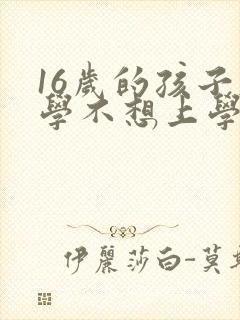 16歲的孩子
學不想上學
伊麗莎白-莫